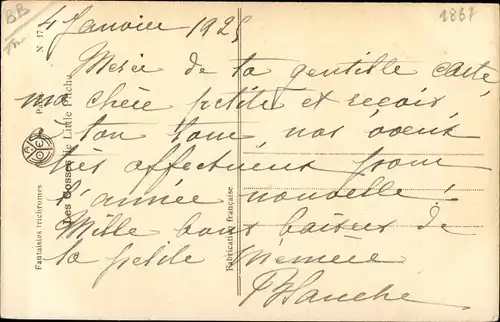 4 Janvier 1925
1867
BB
Merci de ta gentille carte,
ma chère petite et reçois
à ton tour, nos voeux
très affectueux pour
l'année nouvelle !
Mille bons baisers de
ta petite Mémère
Blanche
Fantaisies trichromes
Les Gosses de Little Pitche
N° 17
Fabrication française